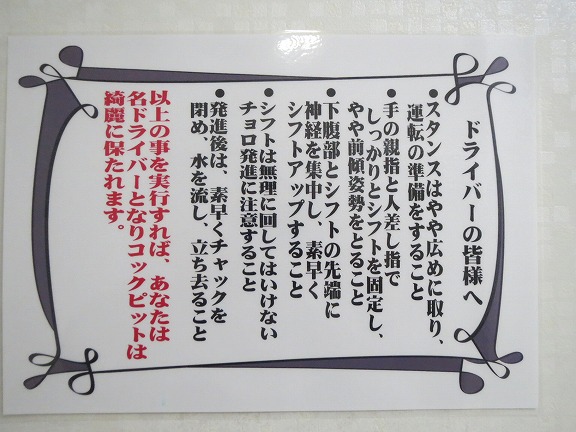 ドライバーの皆様へ
●スタンスはやや広めに取り、
運転の準備をすること
●手の親指と人差し指で
しっかりとシフトを固定し、
やや前傾姿勢をとること
●下腹部とシフトの先端に
神経を集中し、素早く
シフトアップすること
●シフトは無理に回してはいけない
チョロ発進に注意すること
●発進後は、素早くチャックを
閉め、水を流し、立ち去ること
以上の事を実行すれば、あなたは
名ドライバーとなりコックピットは
綺麗に保たれます。